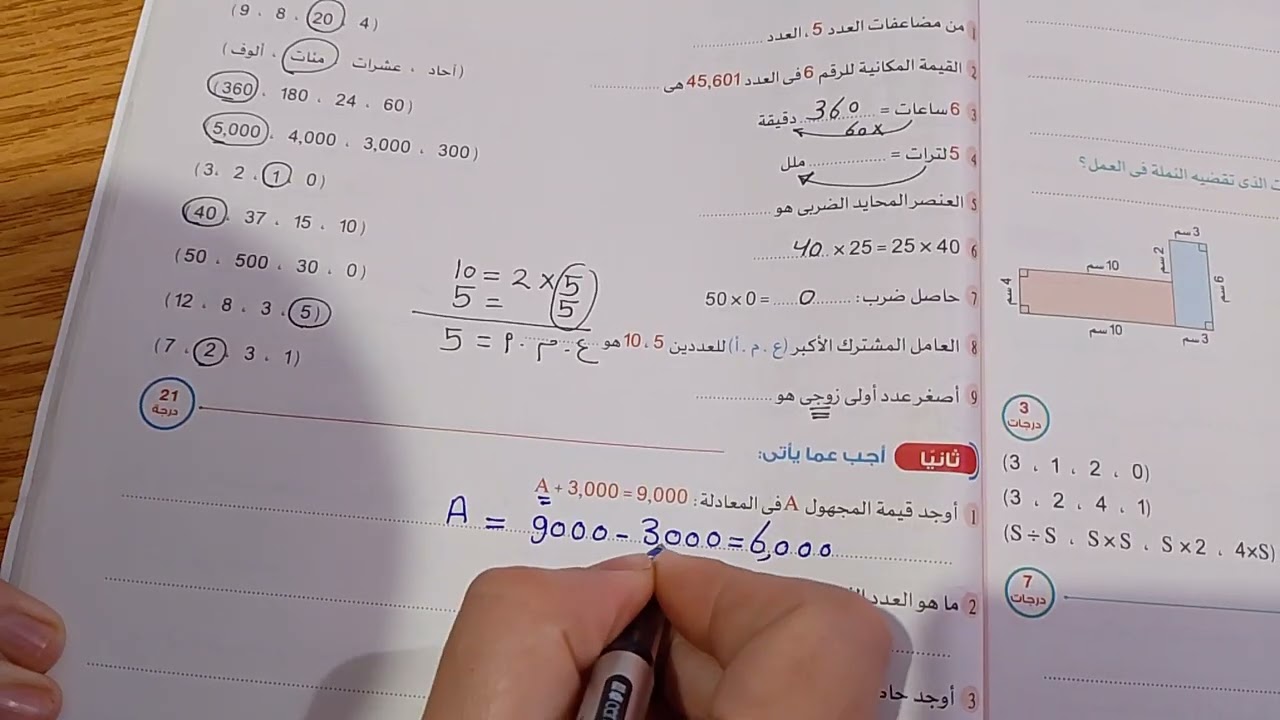 1 من مضاعفات العدد 5، العدد .......... (9 ، 8 ، 20 ، 4)
2 القيمة المكانية للرقم 6 فى العدد 45,601 هى .......... (آحاد ، عشرات ، مئات ، ألوف)
3 6 ساعات = 360 دقيقة (360 ، 180 ، 24 ، 60)
60×
4 5 لترات = .......... ملل (5,000 ، 4,000 ، 3,000 ، 300)
5 العنصر المحايد الضربى هو .......... (3 ، 2 ، 1 ، 0)
6 40 × 25 = 25 × 40 (40 ، 37 ، 15 ، 10)
7 حاصل ضرب: 50 × 0 = 0 (50 ، 500 ، 30 ، 0)
10 = 2 × 5
5 = 5
8 العامل المشترك الأكبر (ع . م . أ) للعددين 5 ، 10 هو .......... (12 ، 8 ، 3 ، 5)
ع . م . أ = 5
9 أصغر عدد أولى زوجى هو .......... (7 ، 2 ، 3 ، 1)
21 درجة
ثانيًا أجب عما يأتى:
1 أوجد قيمة المجهول A فى المعادلة: A + 3,000 = 9,000
A = 9000 - 3000 = 6,000
2 ما هو العدد
3 أوجد
ت الذى تقضيه النملة فى العمل؟
3 سم
2 سم
10 سم
4 سم
6 سم
10 سم
3 سم
3 درجات
(3 ، 1 ، 2 ، 0)
(3 ، 2 ، 4 ، 1)
(S÷S ، S×S ، S×2 ، 4×S)
7 درجات